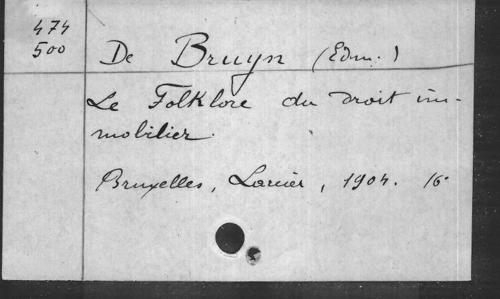 474
500
De Bruyn (Edm.)
Le Folklore du droit im-
mobilier.
Bruxelles, Larcier, 1904. 16°